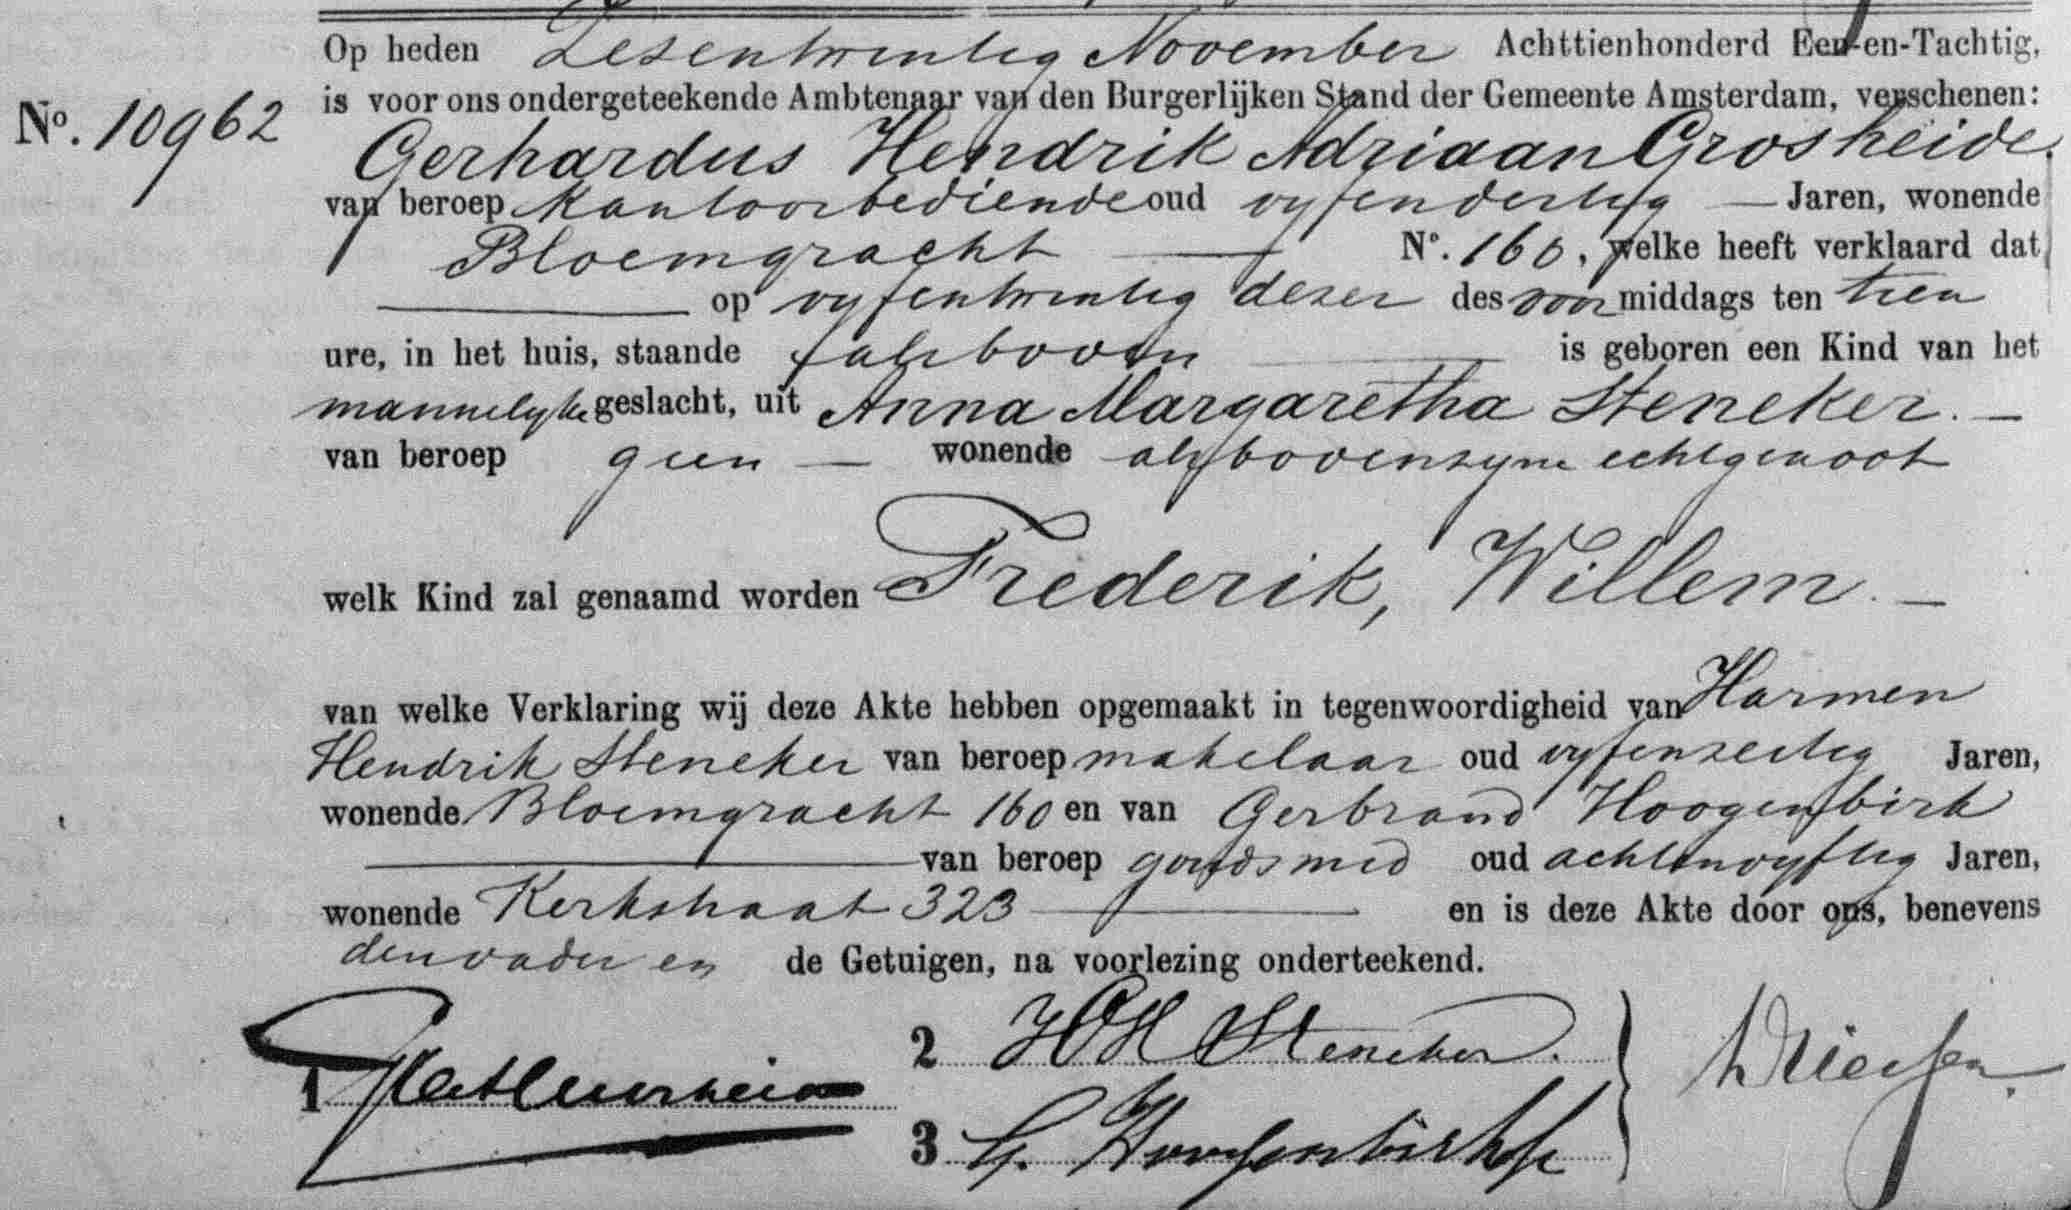 Op heden Zesentwintig November Achttienhonderd Een-en-Tachtig,
No. 10962
is voor ons ondergeteekende Ambtenaar van den Burgerlijken Stand der Gemeente Amsterdam, verschenen:
Gerhardus Hendrik Adriaan Grosheide.
van beroep kantoorbediende oud vyfendertig — Jaren, wonende
Bloemgracht — No. 160, welke heeft verklaard dat
— op vyfentwintig dezer des voormiddags ten tien
ure, in het huis, staande als boven — is geboren een Kind van het
mannelyke geslacht, uit Anna Margaretha Steneker. —
van beroep geen — wonende als boven zyne echtgenoot
welk Kind zal genaamd worden Frederik, Willem. —
van welke Verklaring wij deze Akte hebben opgemaakt in tegenwoordigheid van Harmen
Hendrik Steneker van beroep makelaar oud vyfenzestig Jaren,
wonende Bloemgracht 160 en van Gerbrand Hoogenbirk
— van beroep goudsmid oud achtenvyftig Jaren,
wonende Kerkstraat 323 — en is deze Akte door ons, benevens
den vader en de Getuigen, na voorlezing onderteekend.
1
2 HH Steneker.
3 G. Hoogenbirk